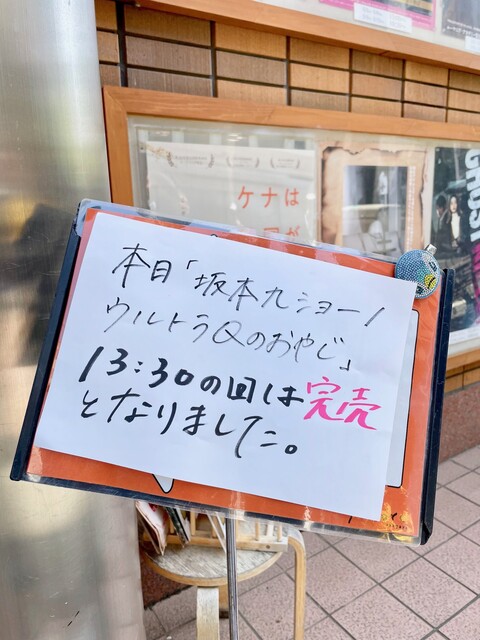 ケナは
が
GHOST
本日「坂本九ショー/
ウルトラQのおやじ」
13:30の回は完売
となりました。